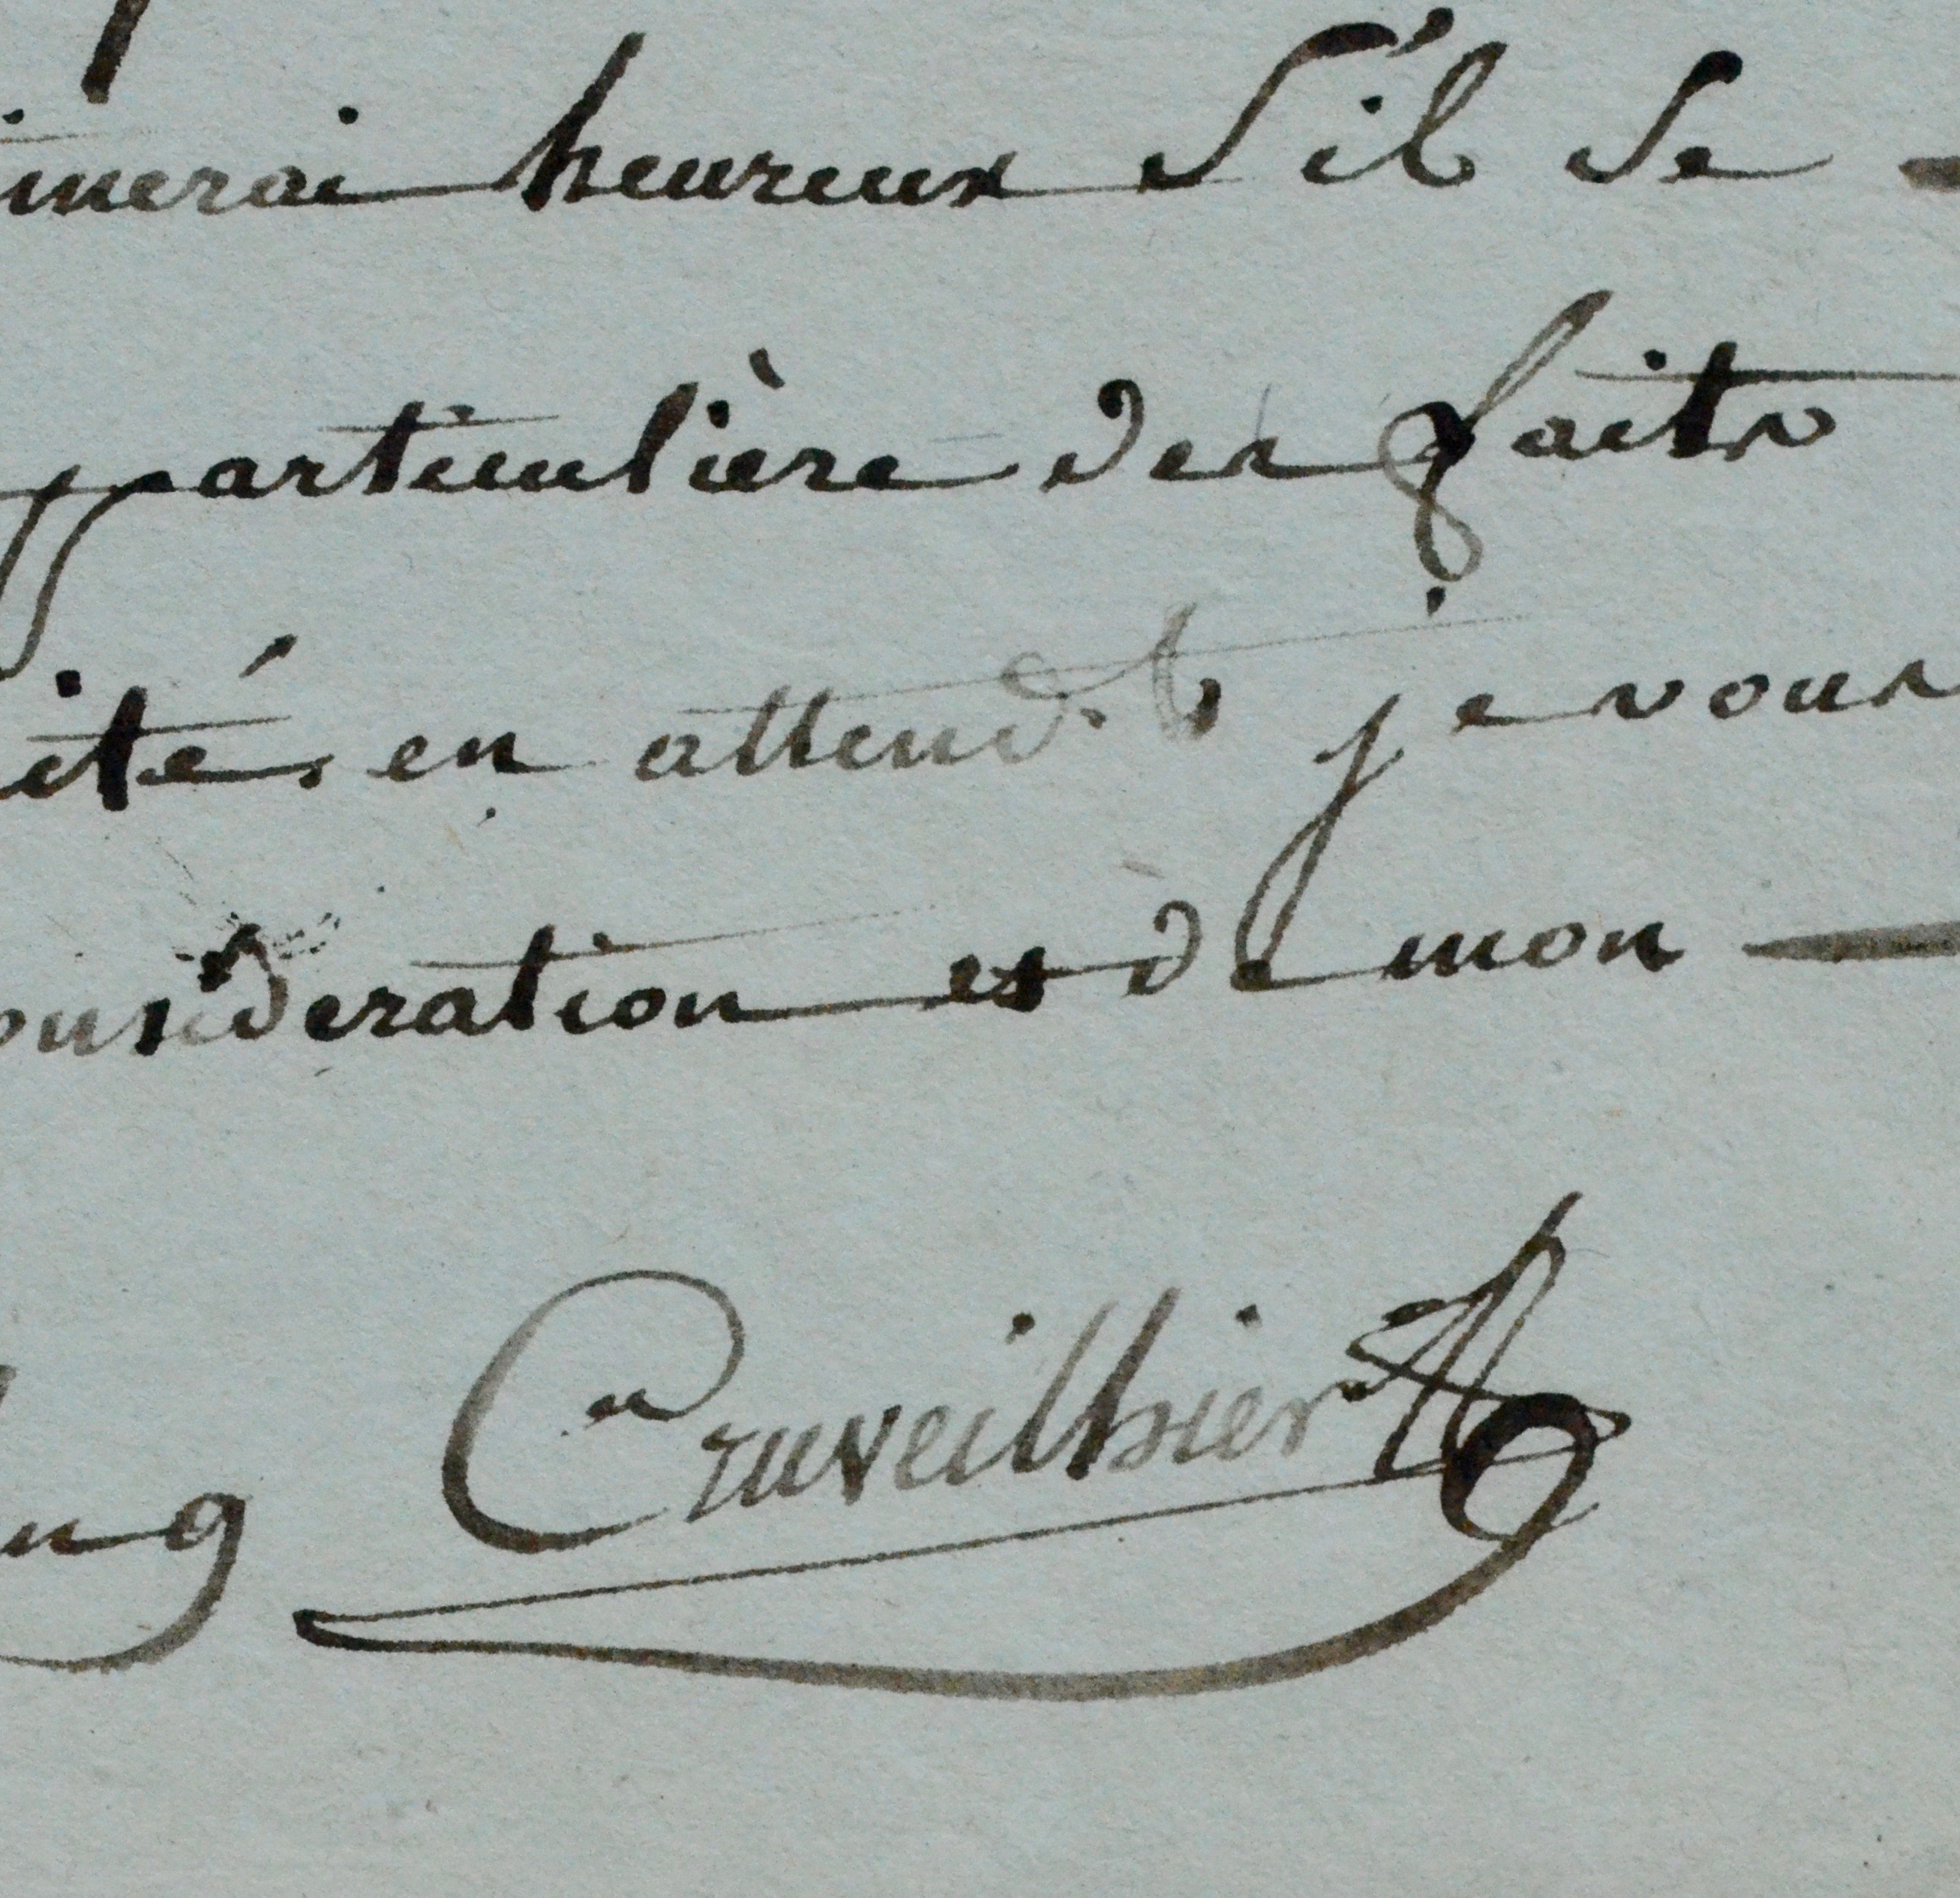 imerai heureux s'il se
particulière des faits
ité, en attend.t je vous
onsideration et de mon
Cruveilhier